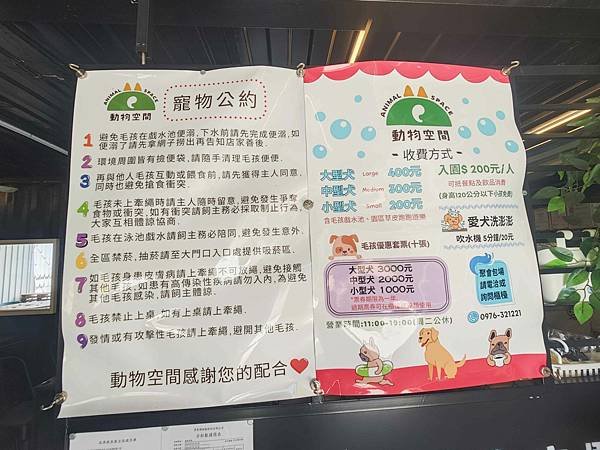 ANIMAL SPACE
動物空間
寵物公約
1 避免毛孩在戲水池便溺,下水前請先完成便溺,如
便溺了請先拿網子撈出再告知店家善後.
2 環境周圍皆有撿便袋,請隨手清理毛孩便便.
3 再與他人毛孩互動或餵食前,請先獲得主人同意,
同時也避免搶食衝突.
4 毛孩未上牽繩時請主人隨時留意,避免發生爭奪
食物或衝突,如有衝突請飼主務必採取制止行為,
大家互相體諒協商.
5 毛孩在泳池戲水請飼主務必陪同,避免發生意外.
6 全區禁菸,抽菸請至大門口入口處提供吸菸區.
7 如毛孩身患皮膚病請上牽繩不可放繩,避免接觸
其他毛孩,如患有高傳染性疾病請勿入內,為避免
其他毛孩感染,請飼主體諒.
8 毛孩禁止上桌,如有上桌請上牽繩.
9 發情或有攻擊性毛孩請上牽繩,避開其他毛孩.
動物空間感謝您的配合
ANIMAL SPACE
動物空間
- 收費方式 -
大型犬 Large 400元
中型犬 Medium 300元
小型犬 Small 200元
含毛孩戲水池、園區草皮跑跑遊樂
入園$ 200元/人
可抵餐點及飲品消費
(身高120公分以下小孩免費)
愛犬洗澎澎
吹水機 5分鐘/20元
毛孩優惠套票(十張)
大型犬 3000元
中型犬 2000元
小型犬 1000元
*票券期限為一年,
聚會包場
請電洽或
詢問櫃檯
0976-321221
營業時間:11:00-19:00(周二公休)